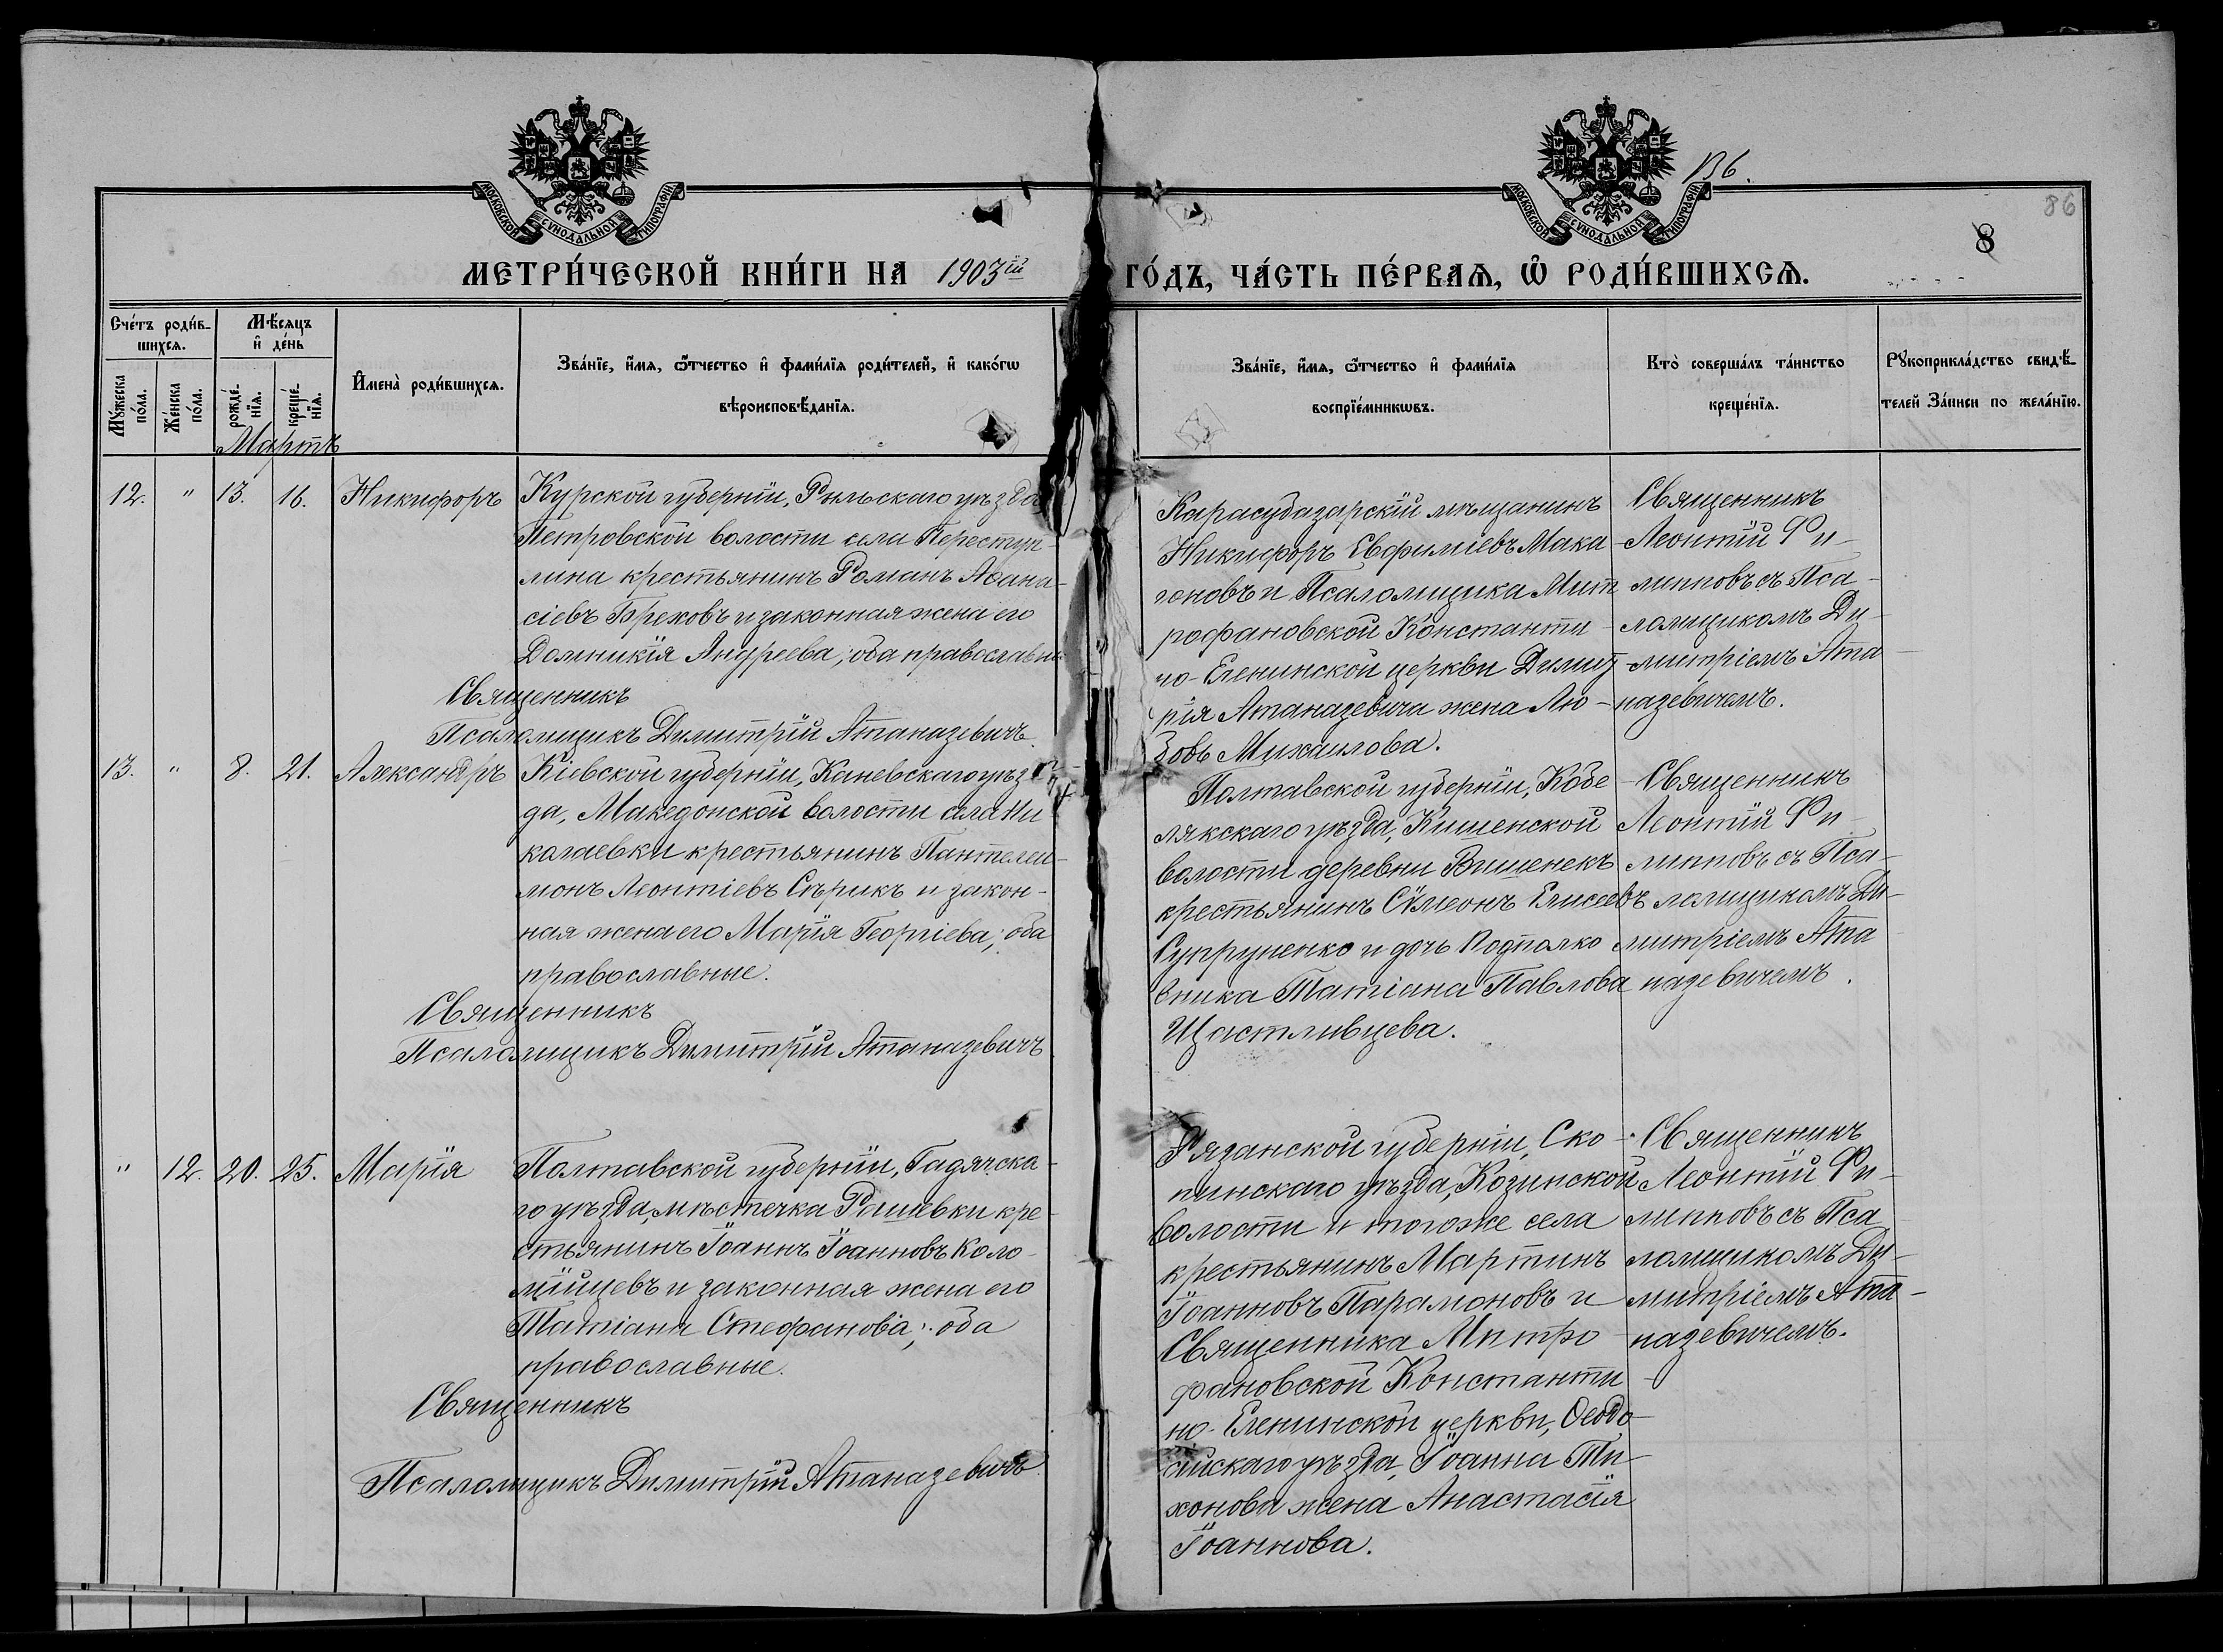 МОСКОВСКОЙ СѴНОДАЛЬНОЙ ТИПОГРАФІИ
МОСКОВСКОЙ СѴНОДАЛЬНОЙ ТИПОГРАФІИ
86
8
МЕТРИ́ЧЕСКОЙ КНИ́ГИ НА 1903ій ГО́ДЪ, ЧА́СТЬ ПЕ́РВАѦ, Ѽ РОДИ́ВШИХСѦ.
Сче́тъ роди́в-
шихсѧ.
Му́жеска по́ла.
Же́нска по́ла.
Мѣ́сѧцъ
и҆ де́нь
рожде́-
нїѧ.
креще́-
нїѧ.
И҆мена̀ роди́вшихсѧ.
Зва́нїе, и҆́мѧ, ѻ҆́тчество и҆ фами́лїѧ роди́телей, и҆ како́гѡ
вѣроисповѣ́данїѧ.
Зва́нїе, и҆́мѧ, ѻ҆́тчество и҆ фами́лїѧ
воспрїе́мникѡвъ.
Кто̀ соверша́лъ та́инство
креще́нїѧ.
Рꙋкоприкла́дство свидѣ́-
телей За́писи по жела́нїю.
Мартъ
12. " 13. 16. Никифоръ
Курской губерніи, Рыльскаго уѣзда
Петровской волости села Переступ-
лина крестьянинъ Романъ Аѳана-
сіевъ Бреховъ и законная жена его
Домникія Андреева; оба православные
Священникъ
Псаломщикъ Димитрій Атаназевичъ.
Карасубазарскій мѣщанинъ
Никифоръ Евфиміевъ Мака-
гоновъ и Псаломщика Мит
рофановской Константи-
но-Еленинской церкви Димит
рія Атаназевича жена Лю-
бовь Михаилова.
Священникъ
Леонтій Фи-
липповъ съ Пса-
ломщикомъ Ди-
митріемъ Ата-
назевичемъ.
13. " 8. 21. Александръ
Кіевской губерніи, Каневскаго уѣз-
да, Македонской волости села Ни-
колаевки крестьянинъ Пантелеи-
монъ Леонтіевъ Сѣрикъ и закон-
ная жена его Марія Георгіева; оба
православные.
Священникъ
Псаломщикъ Димитрій Атаназевичъ
Полтавской губерніи, Кобе-
лякскаго уѣзда, Кишенской
волости деревни Вишенекъ
крестьянинъ Сѵмеонъ Елисеевъ
Супруненко и дочь Подполко
вника Татіана Павлова
Щастливцева.
Священникъ
Леонтій Фи-
липповъ съ Пса-
ломщикомъ Ди-
митріемъ Ата
назевичемъ.
" 12. 20. 25. Марія
Полтавской губерніи, Гадячска-
го уѣзда, мѣстечка Рашевки кре-
стьянинъ Іоаннъ Іоанновъ Коло-
мійцевъ и законная жена его
Татіана Стефанова; оба
православные.
Священникъ
Псаломщикъ Димитрій Атаназевичъ.
Рязанской губерніи, Ско-
пинскаго уѣзда, Козинской
волости и тогоже села
крестьянинъ Мартинъ
Іоанновъ Парамоновъ и
Священника Митро-
фановской Константи-
но-Еленинской церкви, Ѳеодо-
сійскаго уѣзда, Іоанна Ти-
хонова жена Анастасія
Іоаннова.
Священникъ
Леонтій Фи-
липповъ съ Пса-
ломщикомъ Ди-
митріемъ Ата-
назевичемъ.